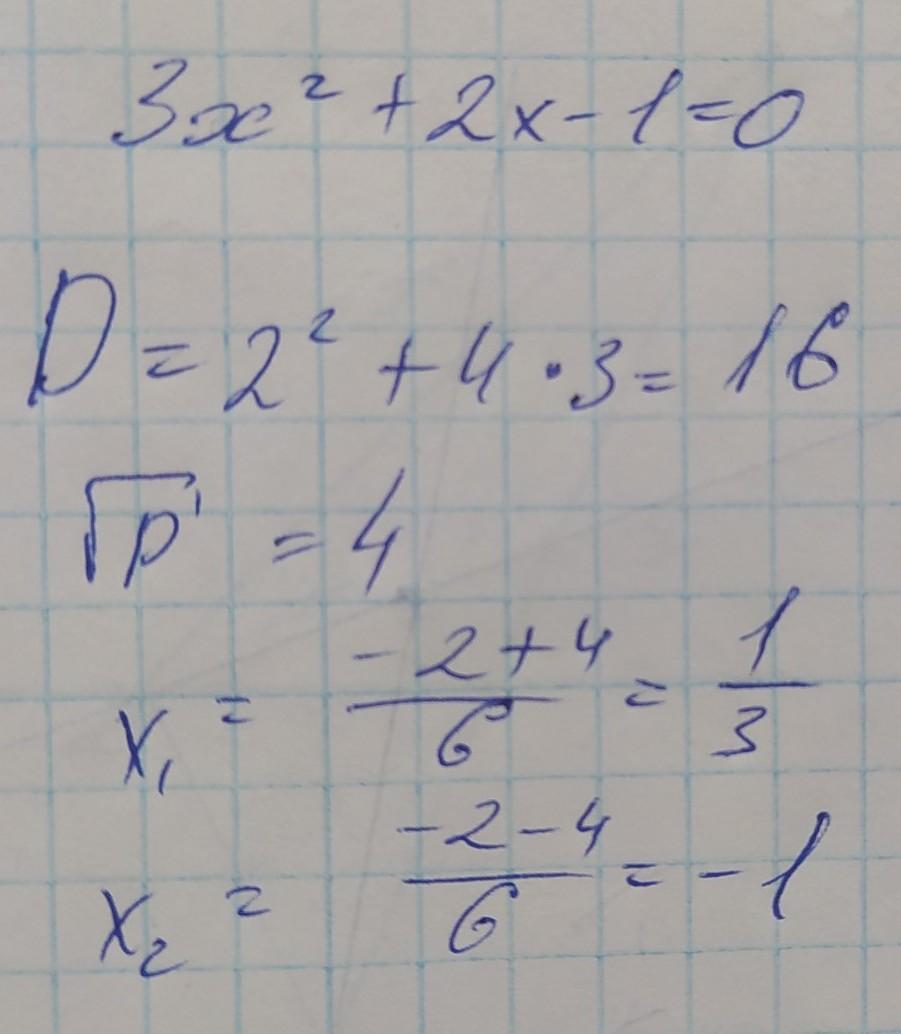 3x² + 2x - 1 = 0
D = 2² + 4 · 3 = 16
√D = 4
x₁ = (-2 + 4)/6 = 1/3
x₂ = (-2 - 4)/6 = -1